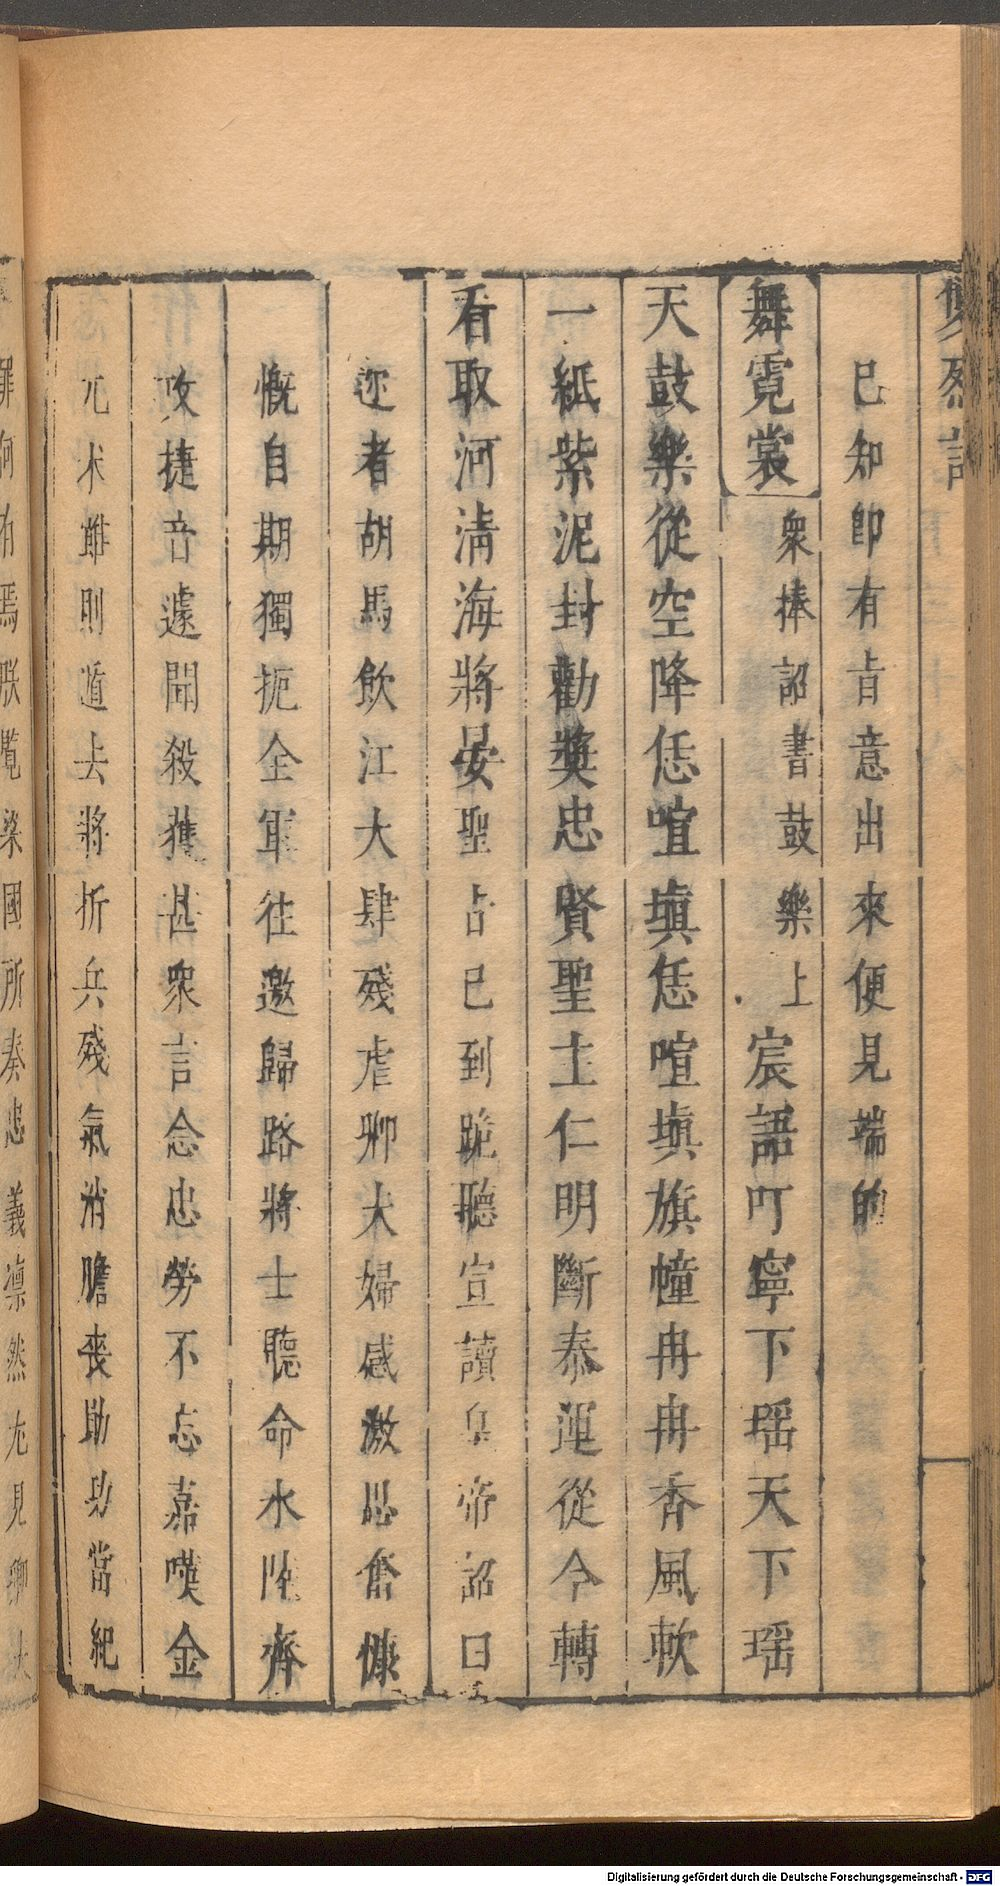 雙烈記
已知卽有旨意出來便見端的
舞霓裳 衆捧詔書鼓樂上 宸語叮寧下瑶天下瑶
天鼓樂從空降恁喧塡恁喧塡旗幢冉冉香風軟
一紙紫泥封勸奬忠賢聖主仁明斷泰運從今轉
看取河淸海將晏聖旨已到跪聽宣讀皇帝詔曰
迩者胡馬飮江大肆殘虐卿夫婦感激思奮慷
慨自期獨扼全軍往邀歸路將士聽命水陸齊
攻捷音遽聞殺獲甚衆言念忠勞不忘嘉嘆金
兀术雖則遁去將折兵殘氣消膽喪助功當紀
罪何有焉朕覧梁國所奏忠義凛然尤見卿大
Digitalisierung gefördert durch die Deutsche Forschungsgemeinschaft - DFG